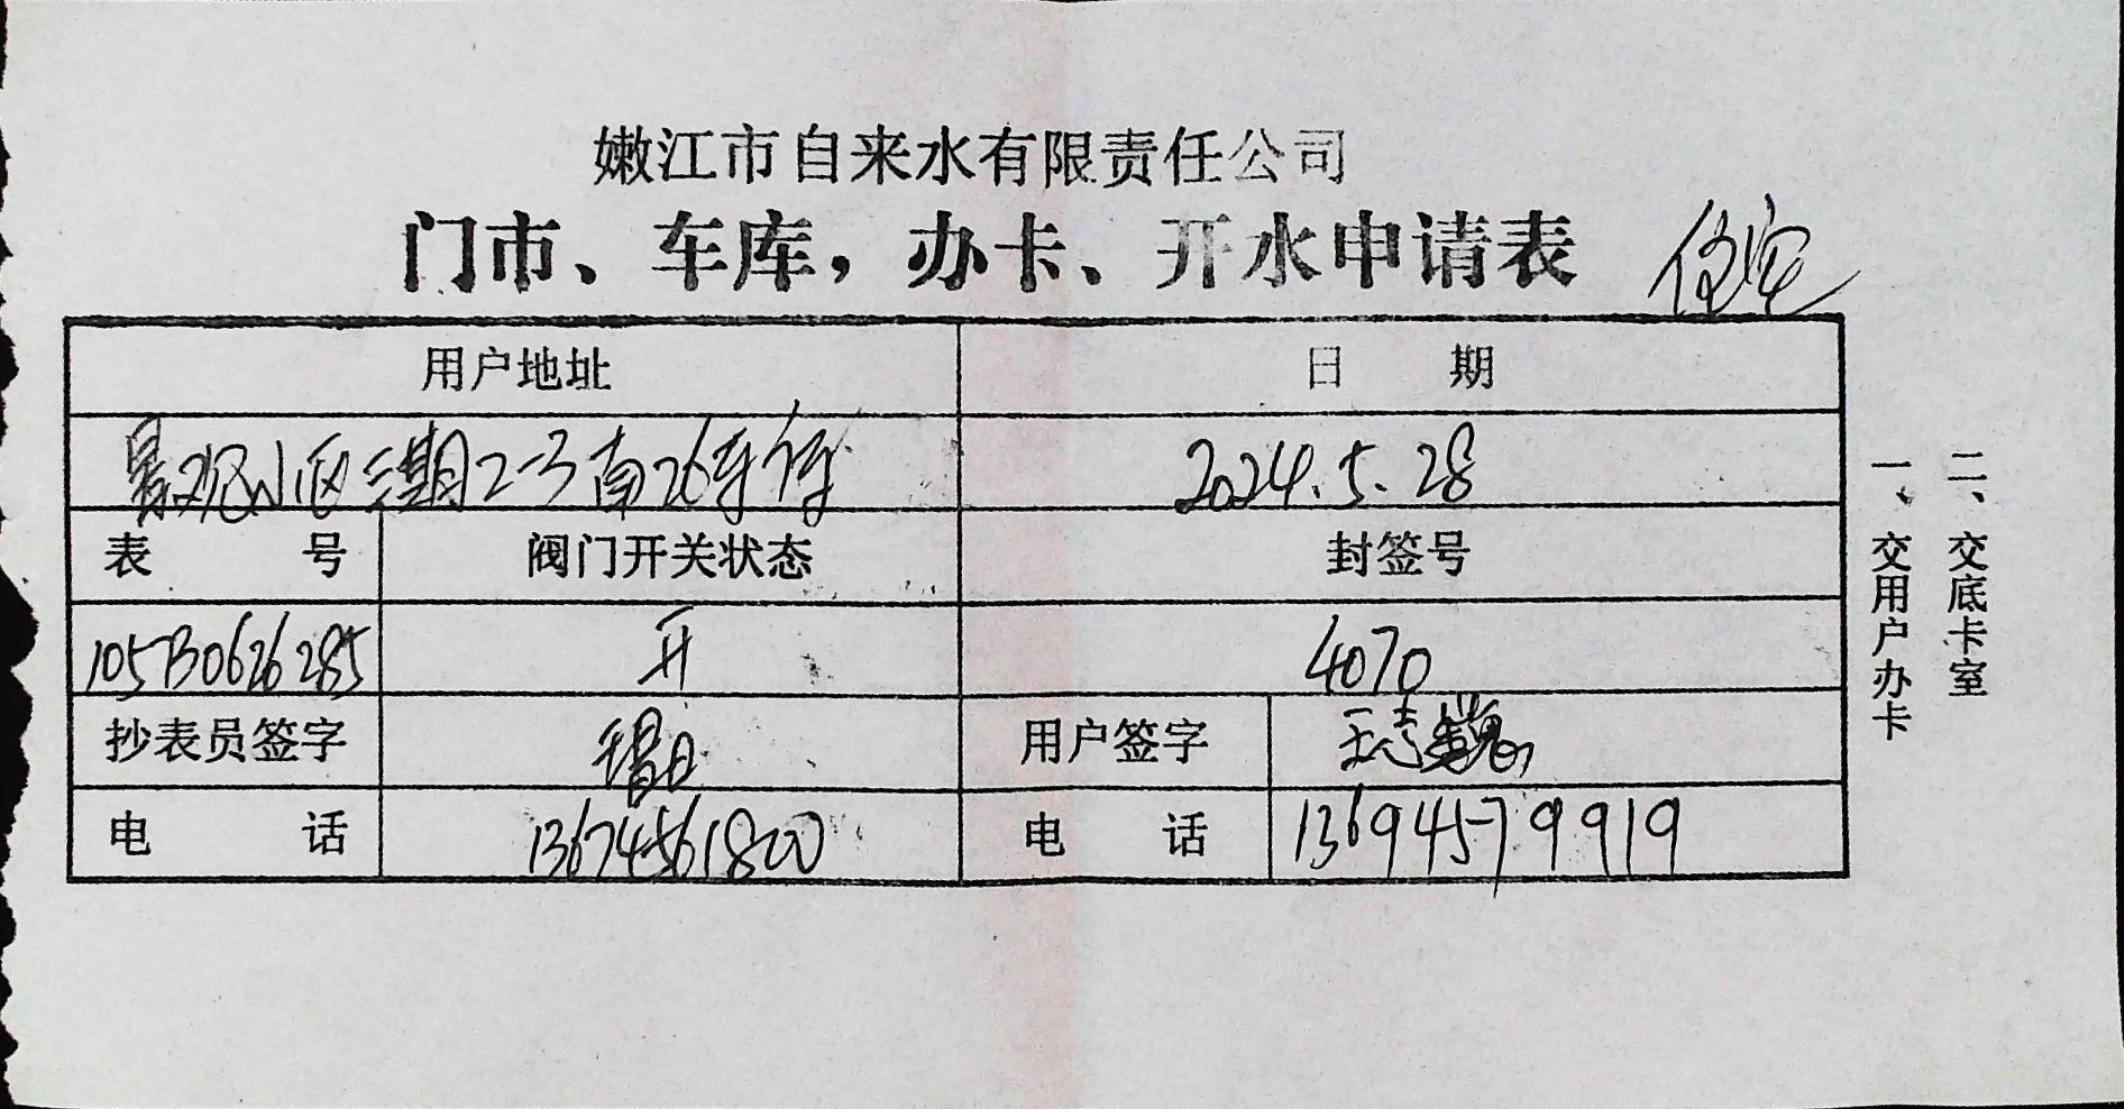 嫩江市自来水有限责任公司
门市、车库，办卡、开水申请表
用户地址 日 期
景观小区三期2-3南26车库 2024.5.28
表 号 阀门开关状态 封签号
105730626285 开 4070
抄表员签字 用户签字 王志巍
电 话 13674561800 电 话 13694579919
一、交用户办卡
二、交底卡室